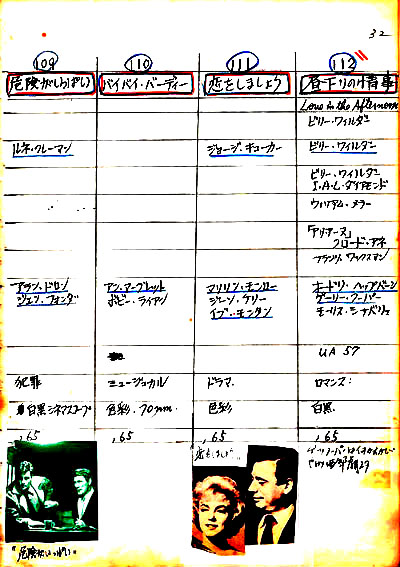 32
109
110
111
112
危険がいっぱい
バイバイ・バーディー
恋をしましょう
昼下りの情事
Love in the Afternoon
ビリー・ワイルダー
ルネ・クレーマン
ジョージ・キューカー
ビリー・ワイルダー
ビリー・ワイルダー
I.A.L.ダイアモンド
ウイリアム・メラー
「アリアーヌ」
クロード・アネ
フランツ・ワックスマン
アラン・ドロン
ジェン・フォンダ
アン・マーグレット
ボビー・ライアン
マリリン・モンロー
ジーン・ケリー
イブ・モンタン
オードリ・ヘップバーン
ゲーリー・クーパー
モーリス・シュバリェ
UA 57
犯罪
ミュージカル
ドラマ
ロマンス
白黒シネマスコープ
色彩・70mm
色彩
白黒
,65
,65
,65
,65
"恋をしましょう"
"危険がいっぱい"